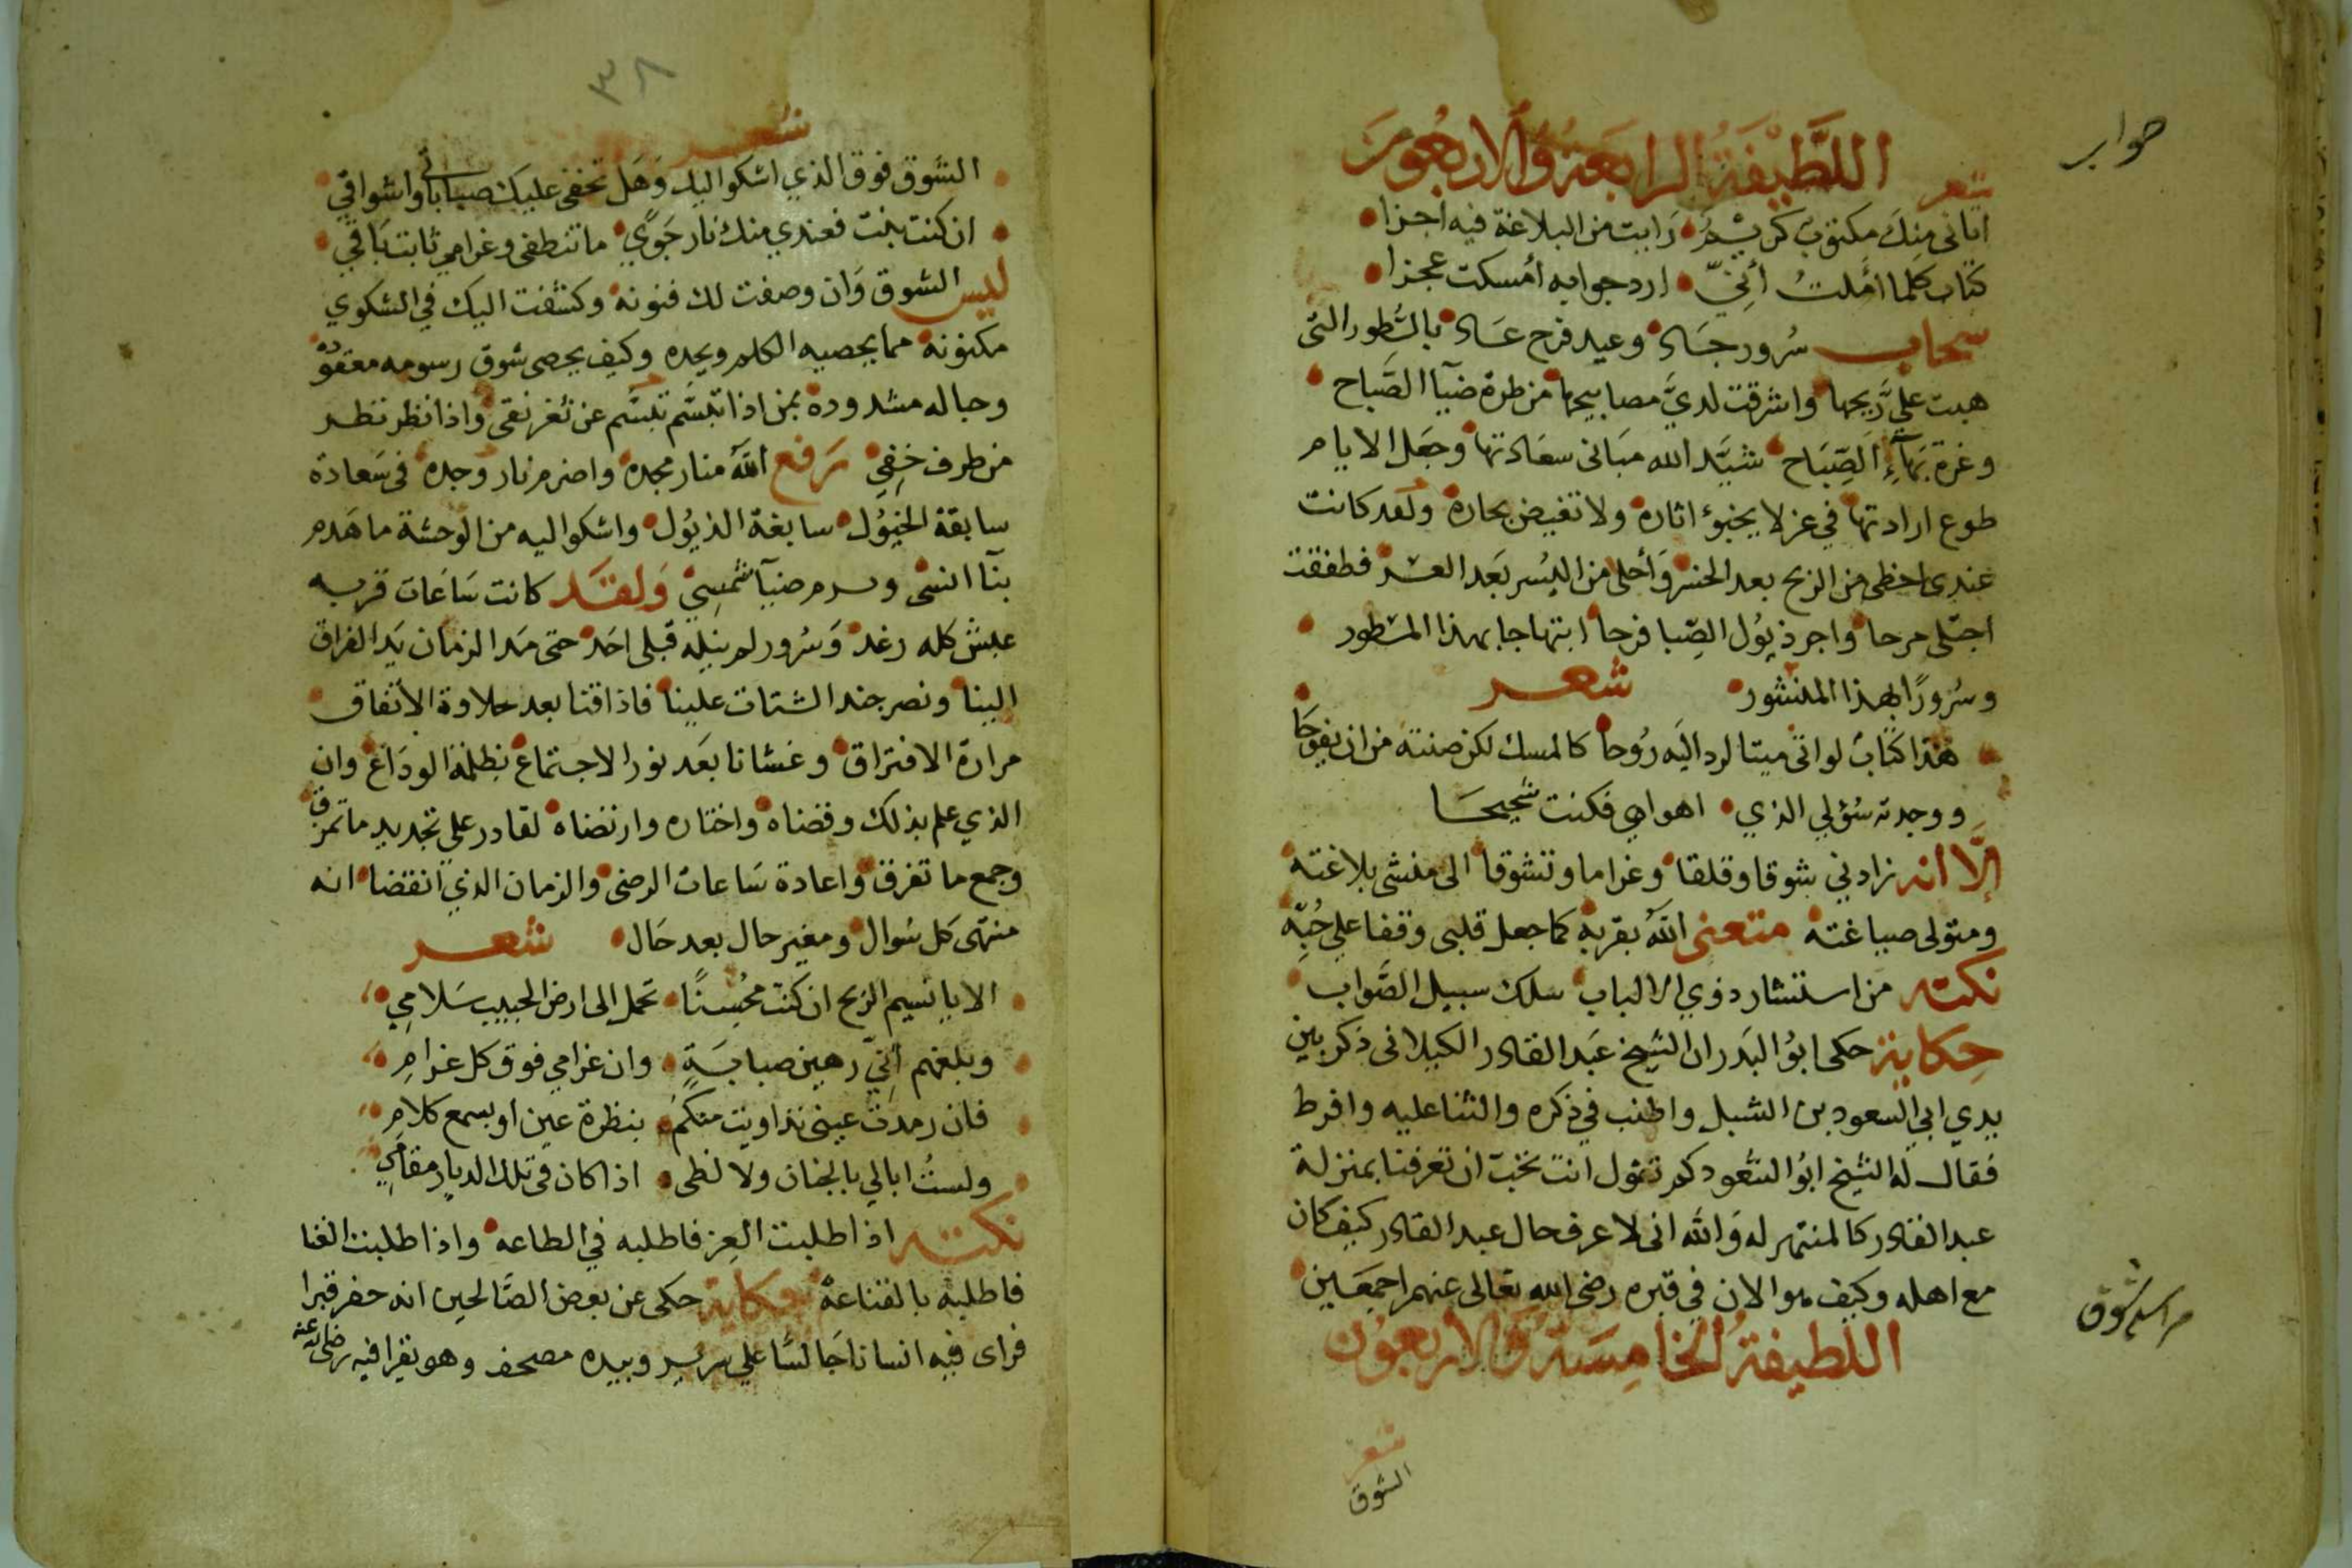 جواب
اللَّطِيْفَةُ الرابعَةُ وَالاربعُونَ
شعر
اتانى مِنكَ مكتوبٌ كريمٌ رَايت من البلاغة فيه اجزا
كتاب كلما امّلتُ أنِّي ارد جوابه أمسكت عجزا
سحاب سُرور جَاد وعيد فرح عَاد بالسُّطور التى
هبت علي رَّيحها واشرقت لديَّ مصابيحها من طرة ضيآ الصَّباح
وغرة بَهآءِ الصِّبَاح شيَّد الله مبَانى سعَادتها وجعَل الايام
طوع ارادتها في عز لا يخبؤ اثاره ولا تغيض بحاره ولقد كانت
عندى احظى من الربح بعد الخسر وَأحلى من اليُسر بَعد العسر فطفقت
اجتلى مرحا واجر ذيُول الصِّبا فرحا ابتهاجا بهذا المسطور
وسُرورًا بهذا المنشور شعر
هَذا كتابٌ لو اتى ميتا لرد اليَه رُوحا كالمسك لكن صنته من ان يفوحَا
ووجدته سُؤلي الذي اهواه فكنت شحيحَا
إلَّا انه زادني شوقا وقلقا وغراما وتشوقا الى منشى بلاغته
ومتولى صياغته متعنى اللهُ بقربه كما جعل قلبى وقفا علي حُبِّه
نكته من استشار ذوي الالباب سلك سبيل الصَّواب
حِكاية حكى ابوُ البَدر ان الشيخ عَبد القادر الكيلانى ذكر بين
يدي ابي السعود بن الشبل واطنب في ذكره والثنا عليه وافرط
فقال له الشيخ ابوُ السُّعود كم تقول انت تحب ان تعرفنا بمنزلة
عبد القادر كالمنتهر له وَالله انى لاعرف حال عبد القادر كيف كان
مع اهله وكيف هو الان في قبره رضى الله تعالى عنهم اجمَعَين
اللطيفةُ الخامِسَةُ وَالاربعُون
مراسلة شوق
شعر
الشوق
٣٨
شعر
الشوق فوق الذي اشكو اليك وَهَل تخفى عليك صباباتى واشواقي
ان كنت بنت فعندي منك نار جَوًي ما تنطفى وغرامي ثابت بَاقي
ليس الشوق وَان وصفت لك فنونه وكشفت اليك في الشكوي
مكنونه مما يحصيه الكلم ويحده وكيف يحصى شوق رسومه معقوده
وحباله مشدوده بمن اذا تبسَّم تبسَّم عن ثغر نقى واذا نظر نظر
من طرف خَفِي رَفع اللهُ منار مجده واضرم نار وجده فى سَعادة
سابقة الخيُول سابغة الذيُول واشكو اليه من الوحشة ما هَدم
بنآ انسى وهدم ضيآ شمسِيْ وَلقَد كانت سَاعَات قربه
عيش كله رغد وَسُرور لم ينِله قبلى احَد حتى مَد الزمان يَد الفراق
الينا ونصر جند الشتات علينا فاذاقنا بعد حلاوة الأتفاق
مرارة الافتراق وغشانا بعَد نور الاجتماع بظلمة الودَاع وان
الذي علم بذلك وقضاه واختاره وارتضاه لقادر على تجديد ما تمزق
وجمع ما تفرق واعادة سَاعات الرضى والزمان الذي انقضا انه
منتهى كل سُوال ومغير حال بعد حَال شعر
الا يا نسيم الريح ان كنت محُسنًا تحمل الى ارض الحبيب سَلامِي
وبلغهم اَنِّي رهين صبابَةٍ وان غرامي فوق كل غرامِ
فان رمدت عينى تداويت منكم بنظرة عين او بسمع كلامِ
ولستُ ابالي بالجنان ولا لظى اذا كان فى تلك الديار مقامِي
نكته اذا طلبت العِز فاطلبه في الطاعه واذا طلبت الغنا
فاطلبه بالقناعة حكاية حكى عن بعض الصَّالحِين انه حفر قبرا
فراى فيه انسانا جَالسًا علي سرير وبيده مصحف وهو يقرا فيه رضى الله عنه